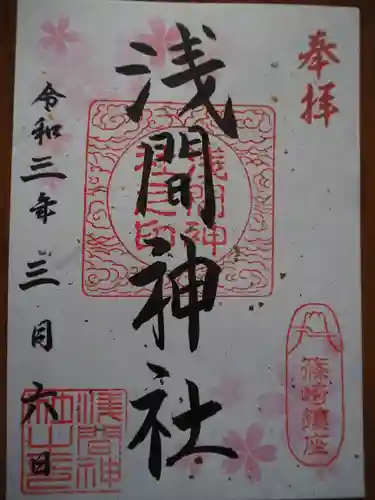 奉拝
浅間神社
令和三年三月六日
浅間神社之印
篠崎鎮座